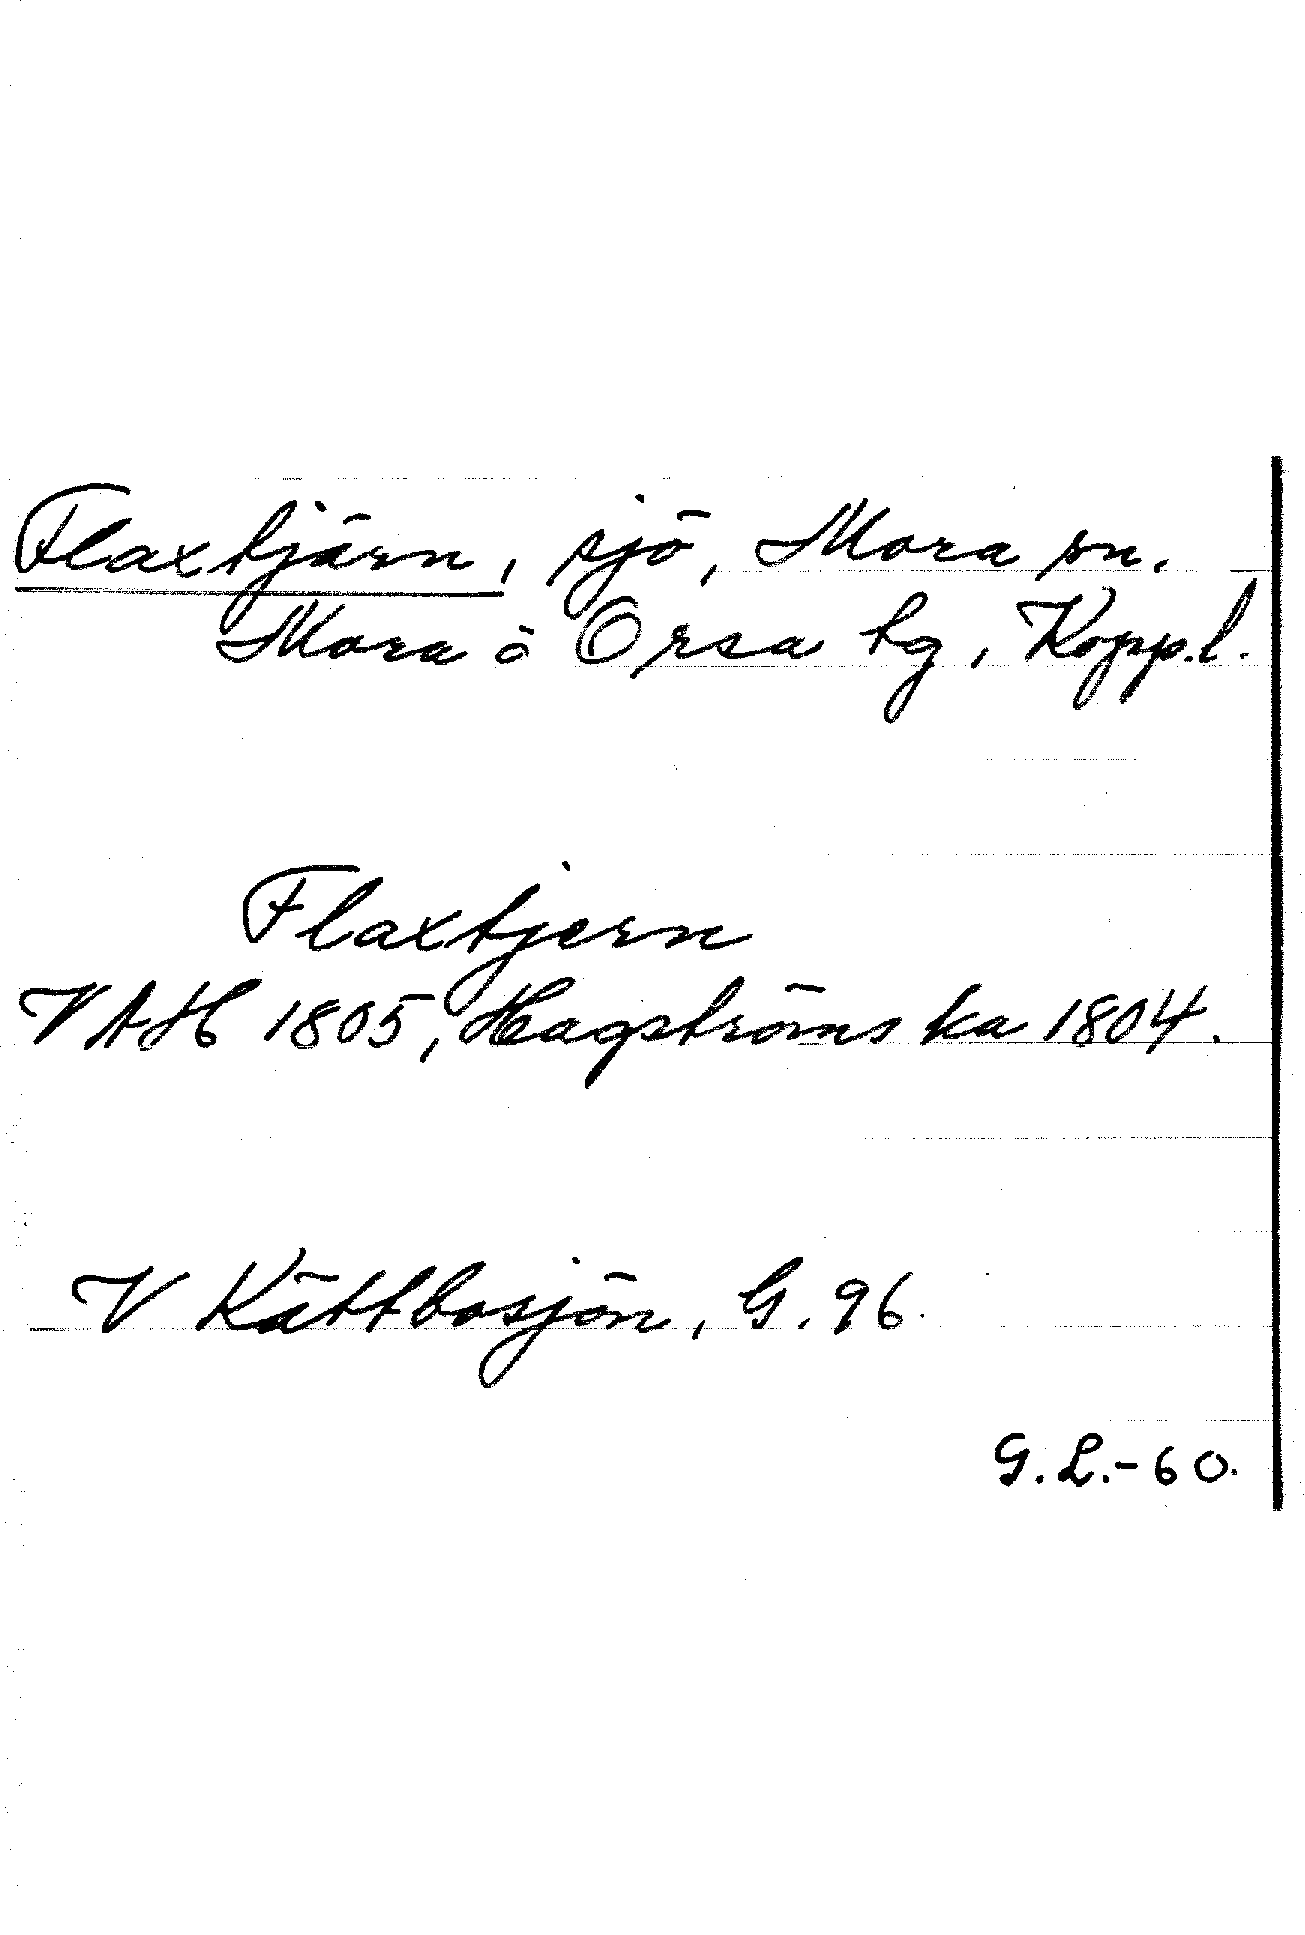 Flaxtjärn, sjö, Mora sn.
Mora o Orsa tg, Kopp.l.
Flaxtjern
VAH 1805, Hagströms ka 1804.
V Kättbosjön, G. 96.
G.L.-60.